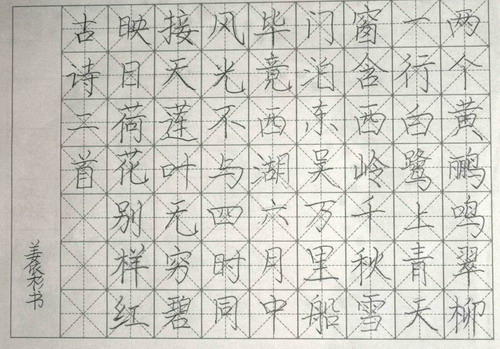 两个黄鹂鸣翠柳
一行白鹭上青天
窗含西岭千秋雪
门泊东吴万里船
毕竟西湖六月中
风光不与四时同
接天莲叶无穷碧
映日荷花别样红
古诗三首
姜书